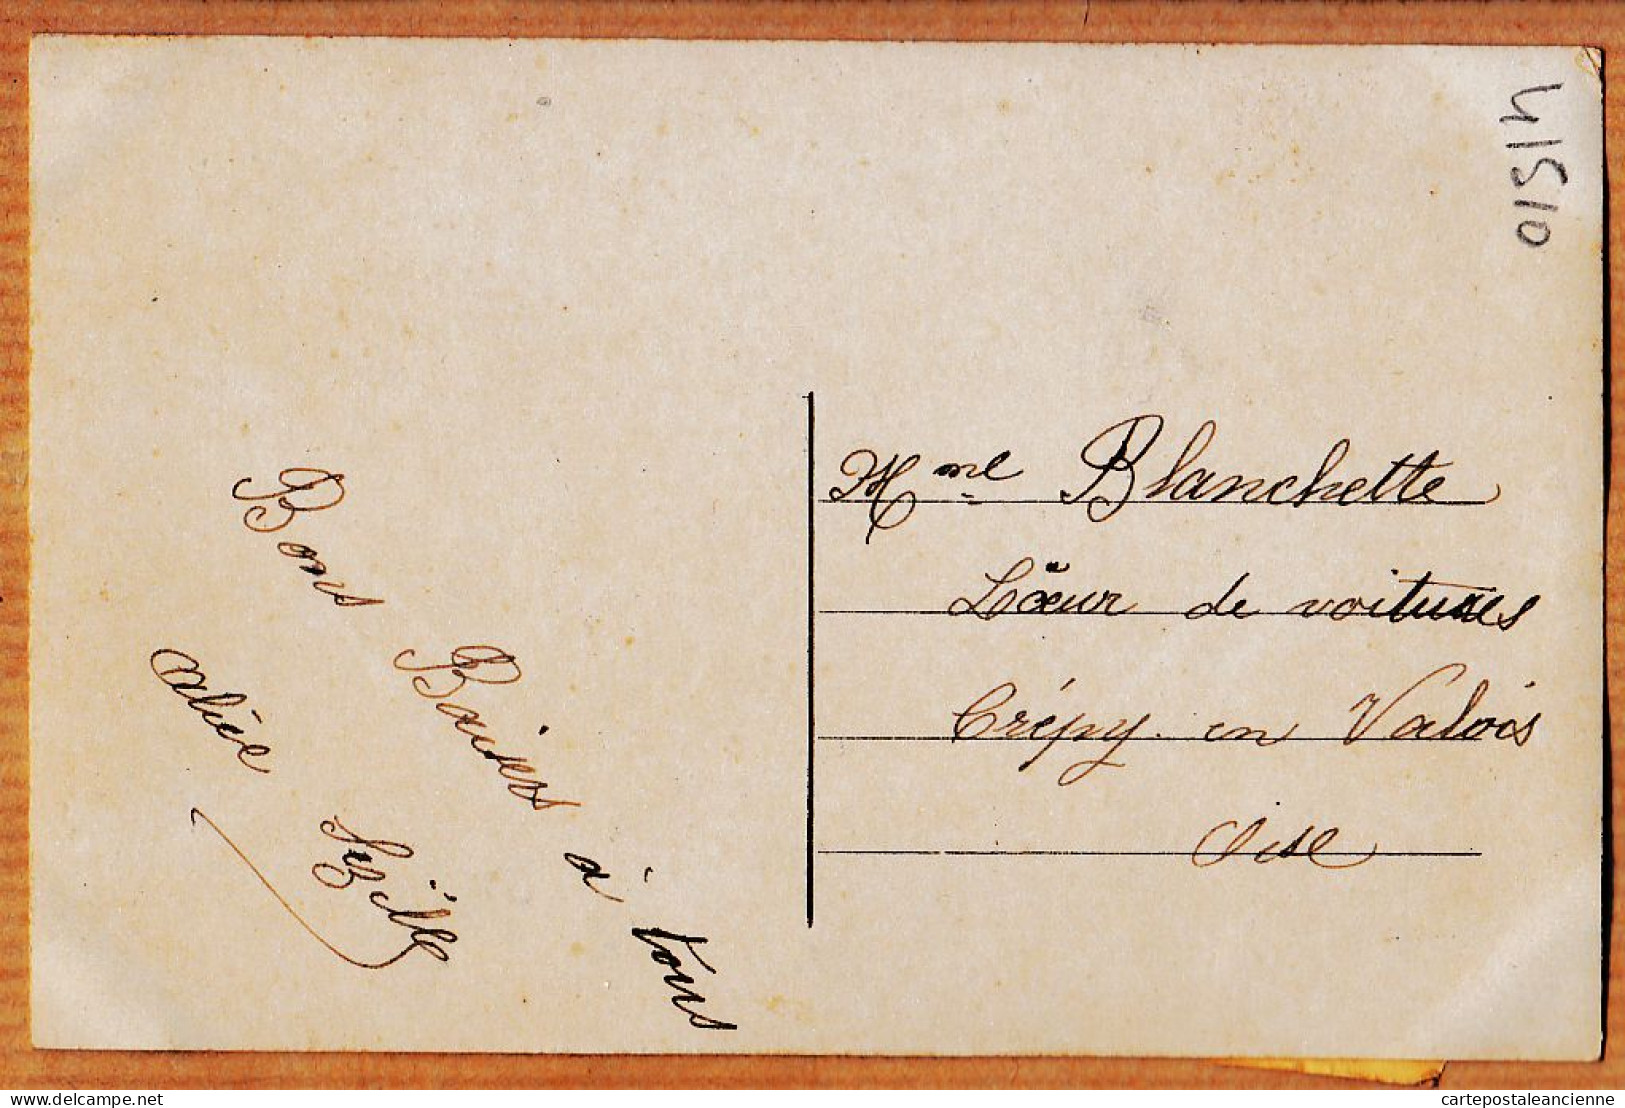 4/510
Bons Baisers à tous
alice Suzille
Mme Blanchette
Loueur de voitures
Crépy en Valois
Oise
delcampe.net
cartepostaleancienne